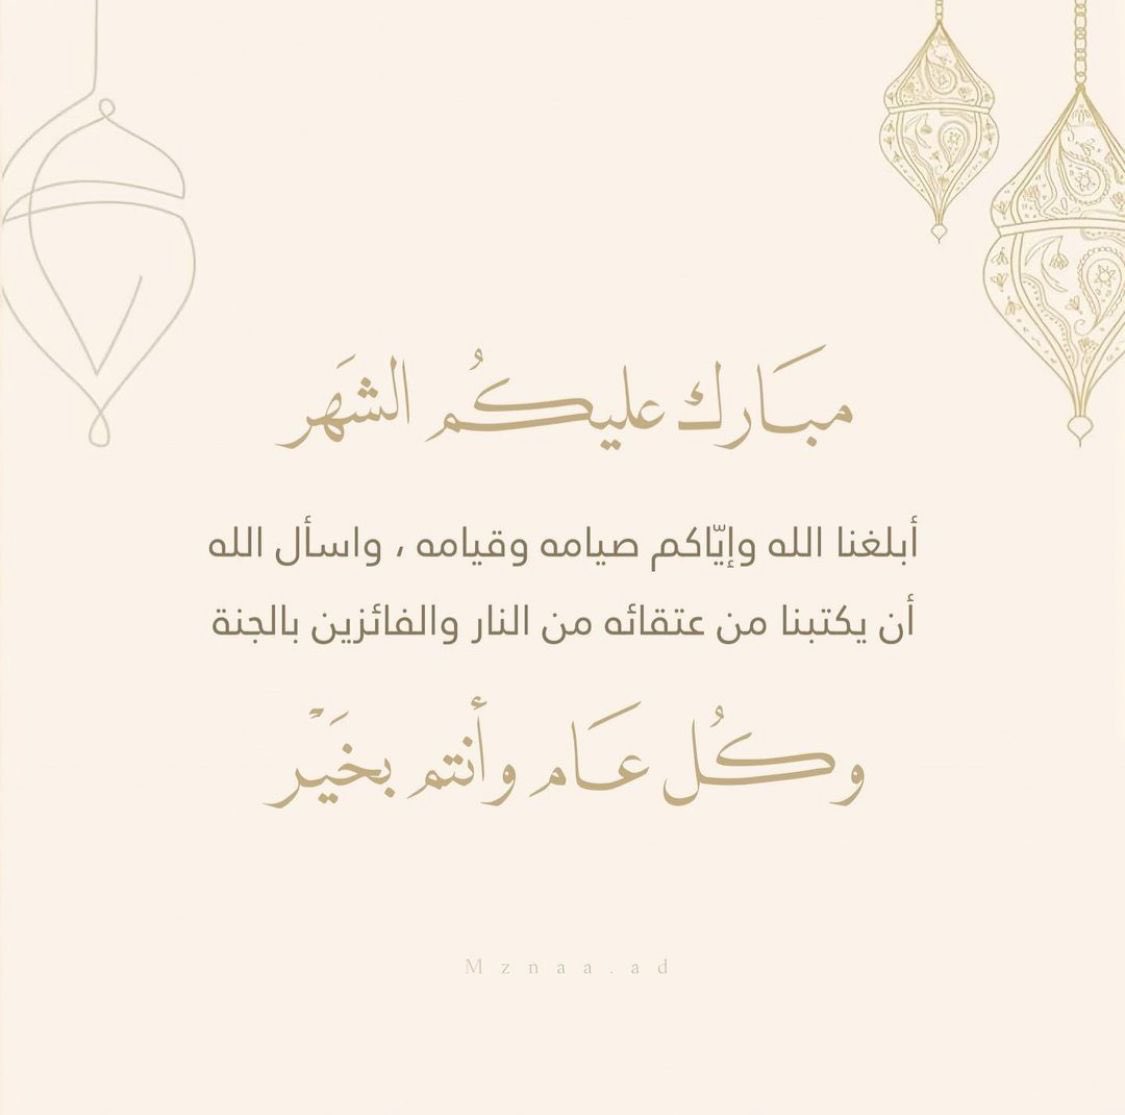 مبَارك عليكُم الشهَر
أبلغنا الله وإيّاكم صيامه وقيامه ، واسأل الله
أن يكتبنا من عتقائه من النار والفائزين بالجنة
وكُل عَام وأنتم بخَيْر
Mznaa.ad